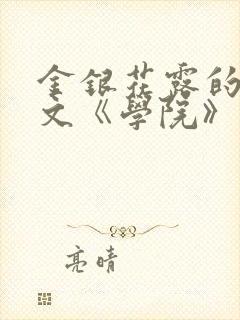 金銀花露的
文《學院》
亮晴